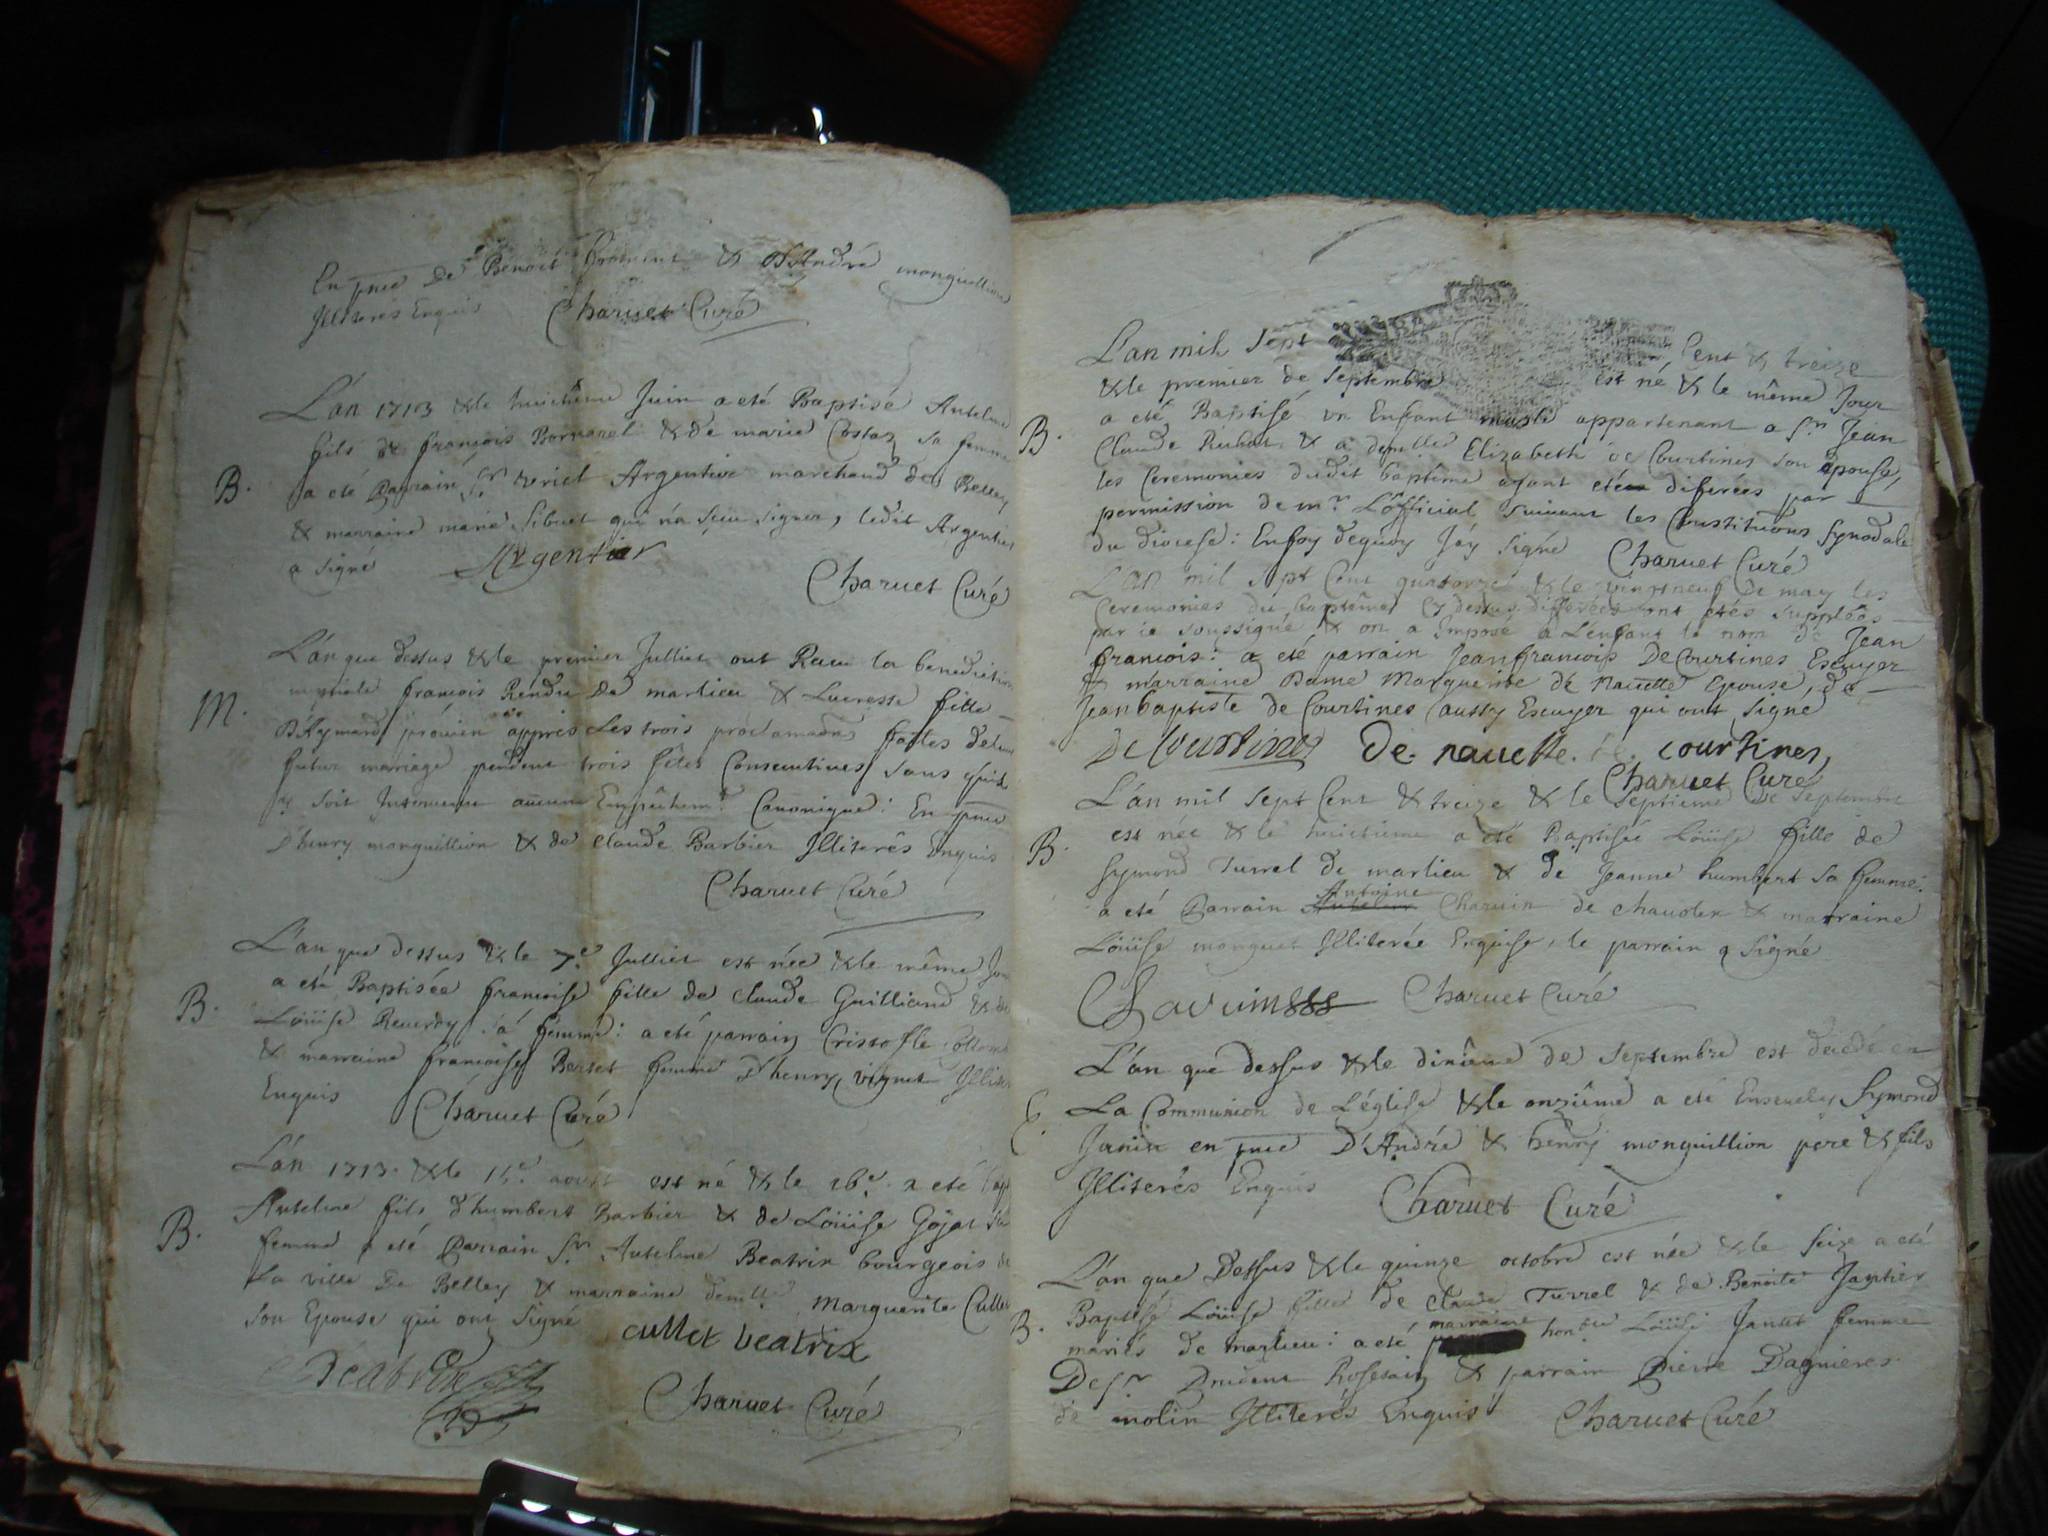 En pnce De Benoit & D'André monguillion
Illiterés Enquis Charuet Curé
L'an 1713 & le huictieme Juin a eté Baptisé Antelme
fils de françois Bornarel & de marie Costaz sa femme
B. a eté Parrain Sr Argentier marchand de Belley
& marraine marie Sibuet qui n'a sçeu signer, ledit Argentier
a signé Argentier
Charuet Curé
L'an que dessus & le premier Julliet ont Receu la benediction
M. nuptiale françois Rendu de marlieu & Lucresse fille
D'Aymard après Les trois proclamaõns faites de leur
futur mariage pendent trois fêtes Consecutives sans quil
y soit Intervenu aucun Empêchemt Canonique: En pnce
D'henry monguillion & de Claude Barbier Illiterés Enquis
Charuet Curé
L'an que dessus & le 7e Julliet est née & le même Jour
a eté Baptisée françoise fille de Claude Guilliand & de
B. Loüise Reverdy sa femme: a eté parrain Cristofle
& marraine françoise Berset femme D'henry vignet Illiterés
Enquis Charuet Curé
L'an 1713 & le 15e aoust est né & le 16e a eté Bapt
Antelme fils d'humbert Barbier & de Loüise Gojat sa
B. femme a eté Parrain Sr Antelme Beatrix bourgeois de
La ville De Belley & marraine demlle Marguerite Cullet
son Epouse qui ont signé cullet beatrix
Beatrix
Charuet Curé
L'an mil sept Cent & treize
& le premier de septembre est né & le même Jour
B. a eté Baptisé un Enfant masle appartenant a Sr Jean
Claude Rubat & a demlle Elizabeth de Courtines son épouse,
les Ceremonies dudit baptême ayant eté diferées par
permission de mr L'official suivant les Constitutions synodale
du diocese: En foy dequoy J'ay signé Charuet Curé
L'an mil sept Cent quatorze & le vingtneuf de may les
Ceremonies du baptême Cy dessus differées ont étés suppléés
par ie soussigné & on a Imposé a L'enfant le nom de Jean
françois: a eté parrain Jean françois De Courtines Escuyer
& marraine Dame Marguerite de Nauette Epouse, de
Jean baptiste de Courtines aussy Escuyer qui ont signé
De Courtines De nauette de courtines
Charuet Curé
L'an mil sept Cent & treize & le septieme de septembre
est née & le huictieme a eté Baptisée Loüise fille de
B. Symond Turrel de marlieu & de Jeanne humbert sa femme:
Antoine
a eté Parrain Antelme Charuin de chauolex & marraine
Loüise monguet Illiterée Enquise, le parrain a signé
Charuin Charuet Curé
L'an que dessus & le dixiême de septembre est decedé en
E. La Communion de L'église & le onziême a eté Enseuely Symond
Janin en pnce D'André & henry monguillion pere & fils
Illiterés Enquis Charuet Curé
L'an que Dessus & le quinze octobre est née & le seize a eté
Baptisé Loüise fille de Claude Turrel & de Benoite Jantier
marraine
B. mariés de marlieu: a eté honble Loüise Jantet femme
De Sr Prudent & parrain Pierre Dagnieres
de molin Illiterés Enquis Charuet Curé